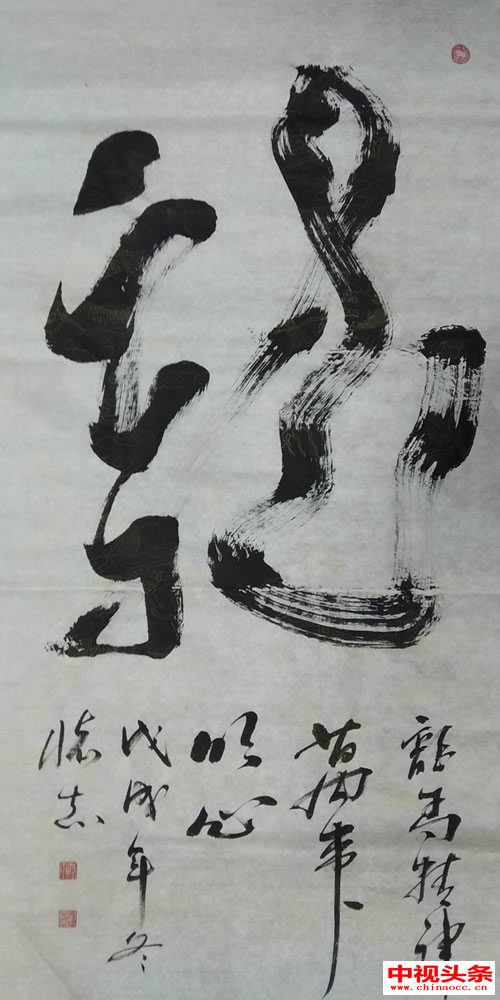 龍
龍馬精神
萬事
心
戊戌年冬
志
中视头条
www.chinaocc.cn